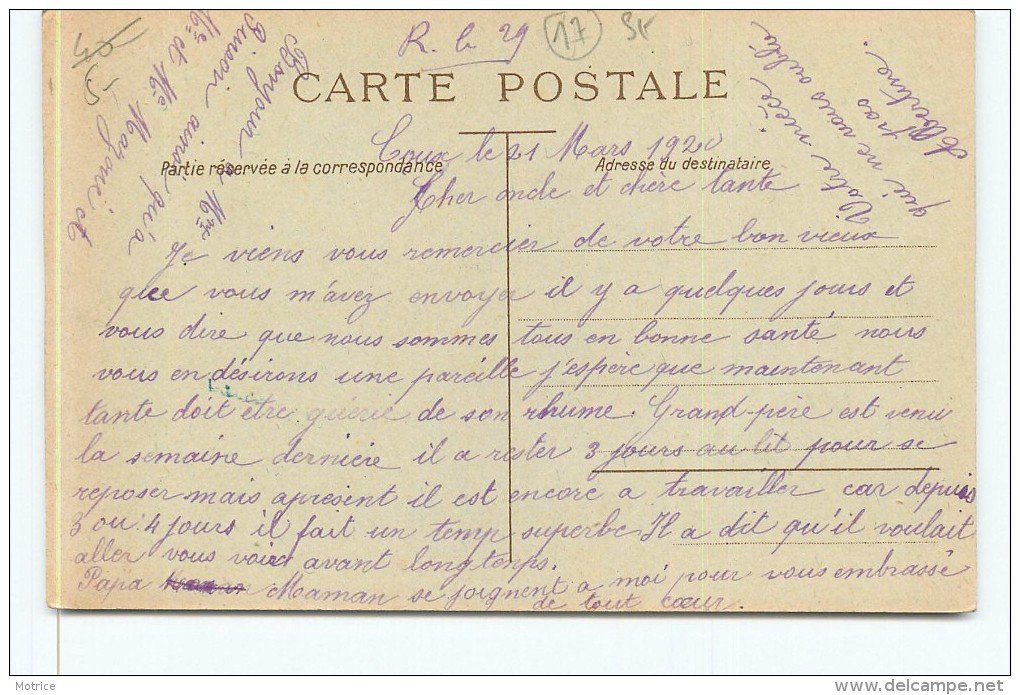 40
5-
R. b 29
17
CARTE POSTALE
Partie réservée à la correspondance
Adresse du destinataire
Coux le 21 Mars 1920
Cher oncle et chère tante
Je viens vous remercier de votre bon vieux
que vous m'avez envoyer il y a quelques jours et
vous dire que nous sommes tous en bonne santé nous
vous en désirons une pareille j'espère que maintenant
tante doit etre guérie de son rhume. Grand-père est venu
la semaine dernière il a rester 3 jours au lit pour se
reposer mais apresent il est encore a travailler car depuis
3 ou 4 jours il fait un temp superbe Il a dit qu'il voulait
aller vous voir avant longtemps.
Papa Maman se joignent a moi pour vous embrasse
de tout cœur.
Votre nièce
qui ne vous oublie
pas
Albertine.
Bonjour a Mme
ainsi qu'a
Mr et Me et
Motrice
http://www.delcampe.net